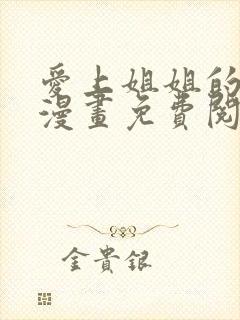 愛上姐姐的
漫畫免費閱
金貴銀